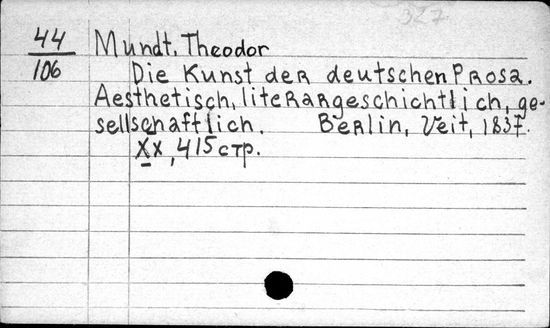 327
44
106
Mundt, Theodor
Die Kunst der deutschen Prosa.
Aesthetisch, literargeschichtlich, ge-
sellschaftlich. Berlin, Veit, 1837.
XX, 415 стр.